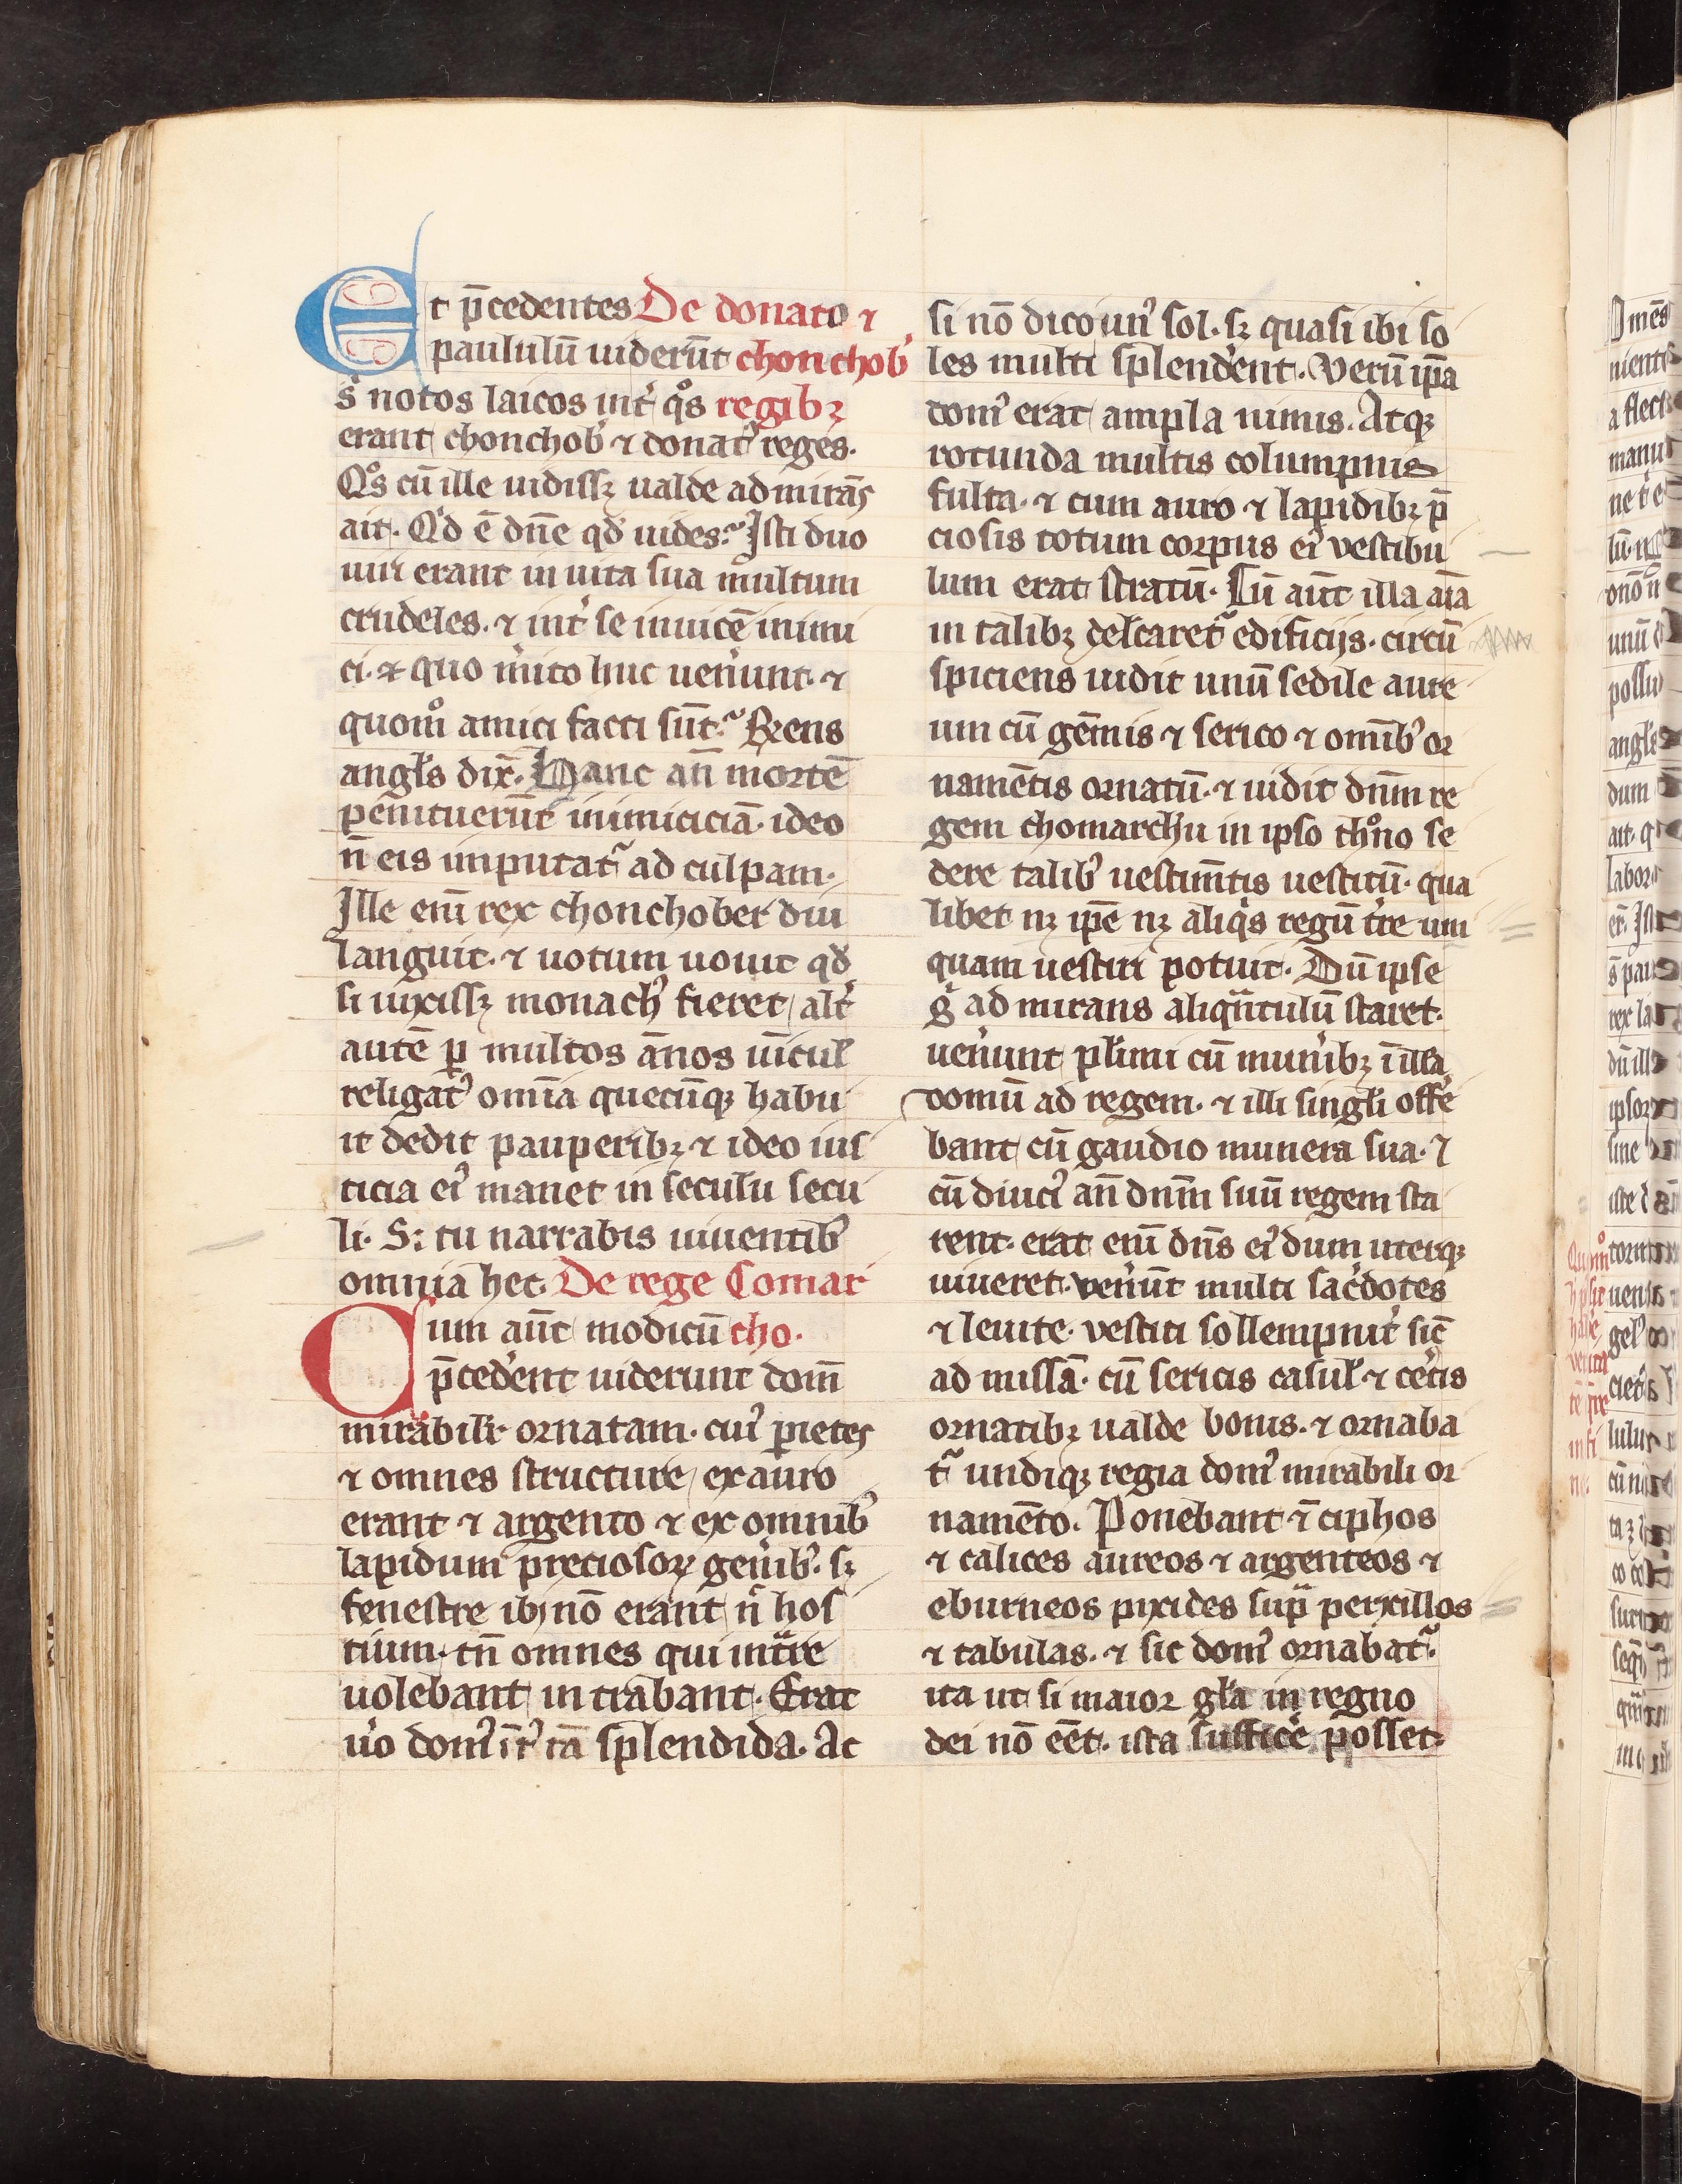 Et p̄cedentes De donato ⁊
paululū uider̄ut chonchob᷒
s᷒ notos laicos int᷒ q̊s regibꝫ
erant chonchob᷒ ⁊ donat᷒ reges.
Q̊s cū ille uidissꝫ ualde admirās
ait. Q᷒d ē dn̄e qd̄ uides. Isti duo
uiri erant in uita sua multum
crudeles. ⁊ int᷒ se inuicē inimi
ci. ⁊ quo m᷒ito huc uen᷒unt. ⁊
quom̊ amici facti sūt. Rn̄ens
angl̄s dix̄. Hanc an̄ mortē
penituer̄ut inimiciciā. ideo
n̄ eis imputat᷒ ad culpam.
Ille eni᷒ rex chonchober diu
languit. ⁊ uotum uouit qd̄
si uixissꝫ monach᷒ fieret alt᷒
autē ꝑ multos ānos ūicul̄
religat᷒ omīa quecūqꝫ habu
it dedit pauperibꝫ ⁊ ideo ius
ticia ei᷒ manet in seculū secu
li. Sꝫ tu narrabis uiuentib᷒
omnia hec. De rege Comar
Cum aūt modicū cho.
p̄ced᷒ent uiderunt dom̄
mirabilit᷒ ornatam. cui᷒ ꝑietes
⁊ omnes structure ex auro
erant ⁊ argento ⁊ ex omnib᷒
lapidum preciosoꝝ gen᷒ib᷒. sꝫ
fenestre ibi nō erant n᷒ hos
tium. tn̄ omnes qui int᷒re
uolebant intrabant. Erat
u᷒o dom᷒ īt᷒ tā splendida. Ac
si nō dico un᷒ sol. sꝫ quasi ibi so
les multi splend᷒ent. Verū ip̄a
dom᷒ erat ampla nimis. Atqꝫ
rotunda multis columpnis
fulta. ⁊ cum auro ⁊ lapidibꝫ p̄
ciosis totum corpus ei᷒ vestibu
lum erat stratū. Cū aūt illa aīa
in talibꝫ delcaret᷒ edificijs. circū
spiciens uidit unū sedile aure
um cū gēmis ⁊ serico ⁊ omīb᷒ or
namētis ornatū. ⁊ uidit dn̄m re
gem chomarchū in ipso th᷒no se
dere talib᷒ uestim̄tis uestitū. qua
libet nꝫ ip̄e nꝫ aliq᷒s regū t᷒re um
quam uestiri potuit. Dū ipse
g᷒ ad mirans aliqn̄tulū staret.
uen᷒unt pl᷒imi cū mun᷒ibꝫ ī illā
domū ad regem. ⁊ illi singl̄i offe᷒
bant cū gaudio munera sua. ⁊
cū diuci᷒ an̄ dnm̄ suū regem sta
rent. erat eni᷒ dn̄s ei᷒ dum uterqꝫ
uiueret. uen᷒ūt multi sac᷒dotes
⁊ leuite. vestiti sollempnit᷒ sic̄
ad missā. cū sericis casul̄ ⁊ cet᷒is
ornatibꝫ ualde bonis. ⁊ ornaba
t᷒ undiqꝫ regia dom᷒ mirabili or
namēto. Ponebant ⁊ ciphos
⁊ calices aureos ⁊ argenteos ⁊
eburneos pixides sup᷒ perxillos
⁊ tabulas. ⁊ sic dom᷒ ornabat᷒.
ita ut si maior gl̄a in regno
dei nō eēt. ista suffic᷒e posset.